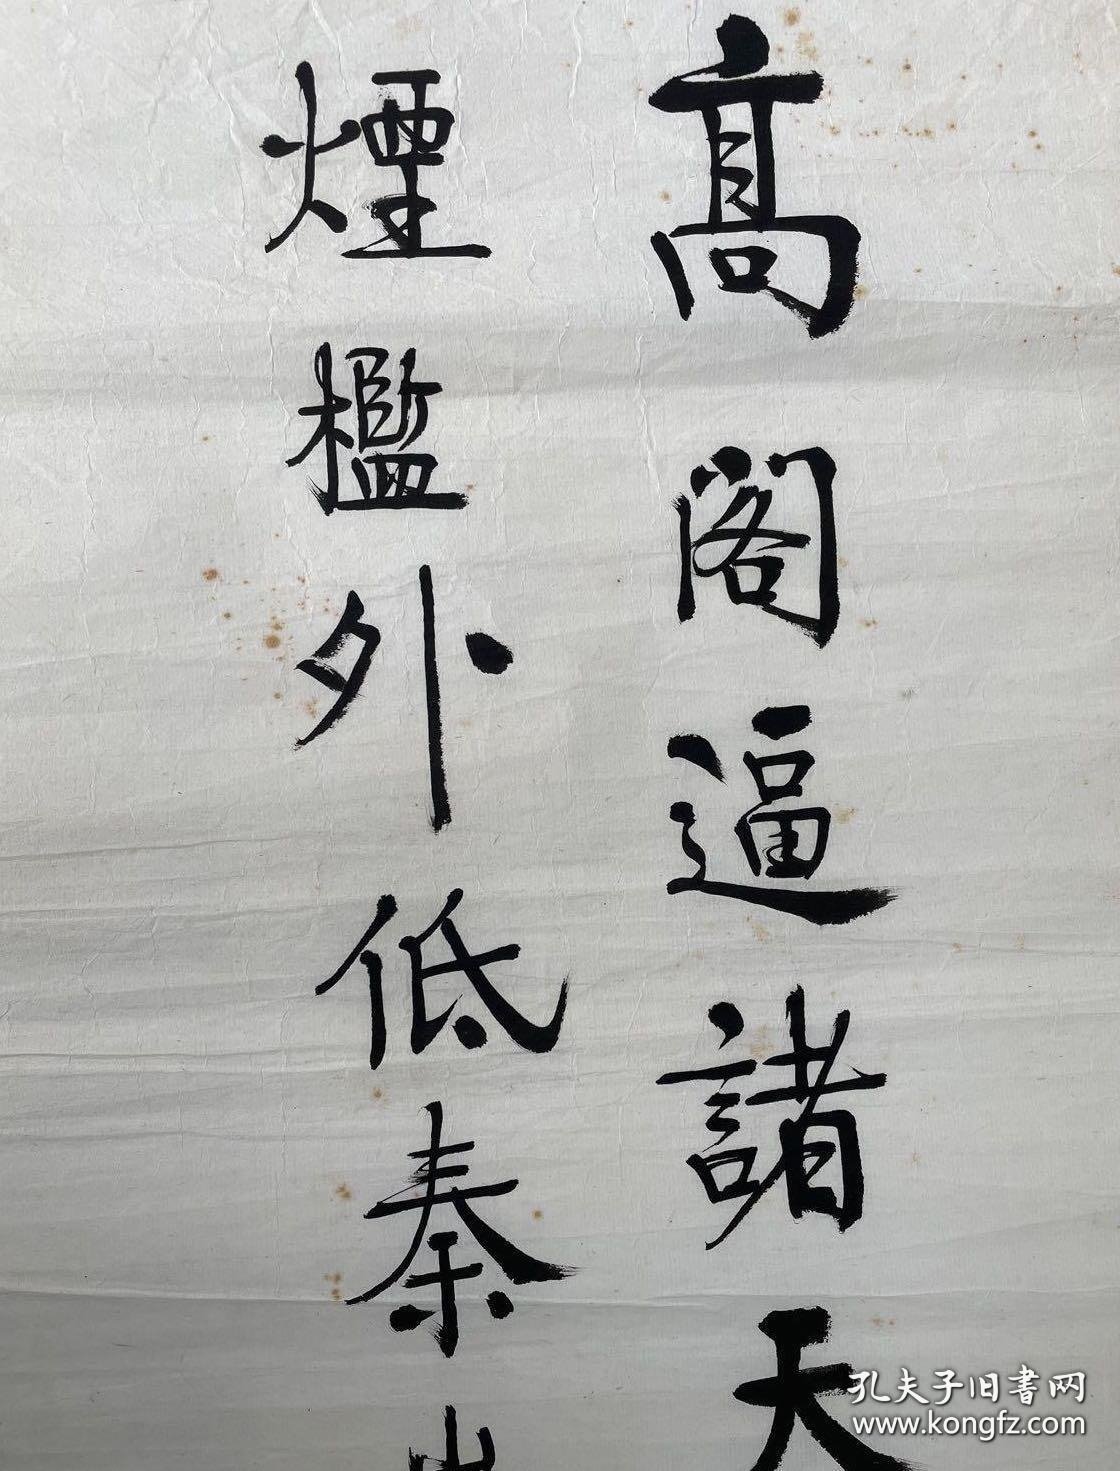 高閣逼諸天
煙檻外低秦
孔夫子旧書网
www.kongfz.com